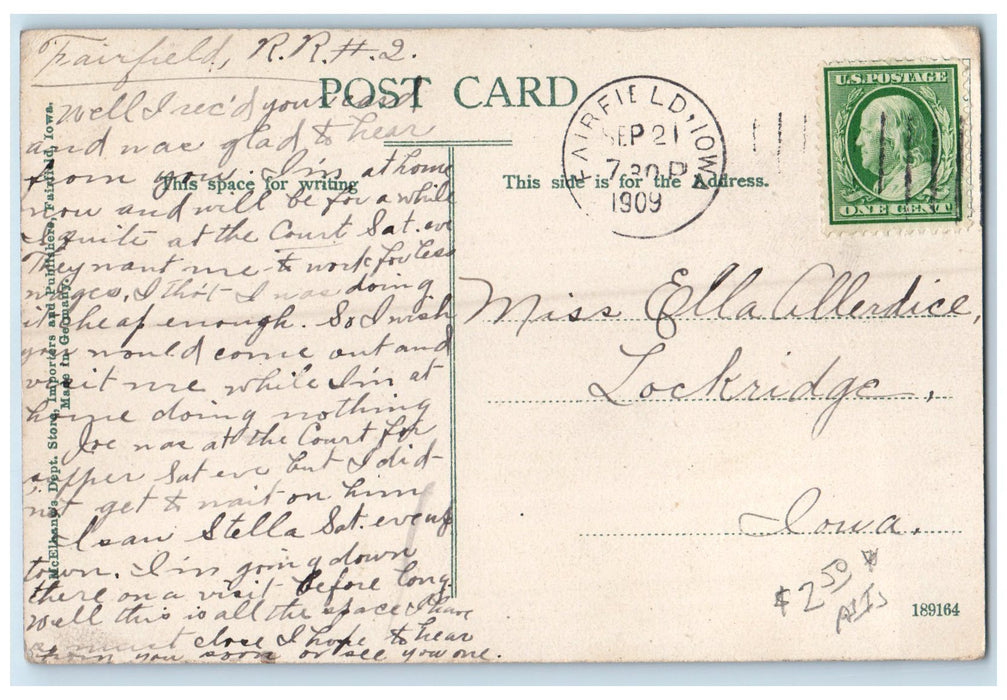 Fairfield, R.R.#.2.
POST CARD
Well I rec'd your card
and was glad to hear
from you. I'm at home
now and will be for a while
I quite at the Court Sat. eve
They want me to work for less
wages, I tho't I was doing
it cheap enough. So I wish
you would come out and
visit me while I'm at
home doing nothing
Joe was at the Court for
supper Sat eve but I did-
n't get to wait on him
I saw Stella Sat. eve up
town. I'm going down
there on a visit before long.
Well this is all the space I have
so must close I hope to hear
from you soon or see you one.
This space for writing
This side is for the Address.
McElhany's Dept. Store, Importers and Publishers, Fairfield, Iowa.
Made in Germany.
FAIRFIELD, IOWA
SEP 21
7-30 P
1909
U.S. POSTAGE
ONE CENT
Miss Ella Allerdice,
Lockridge,
Iowa.
$2.50
189164